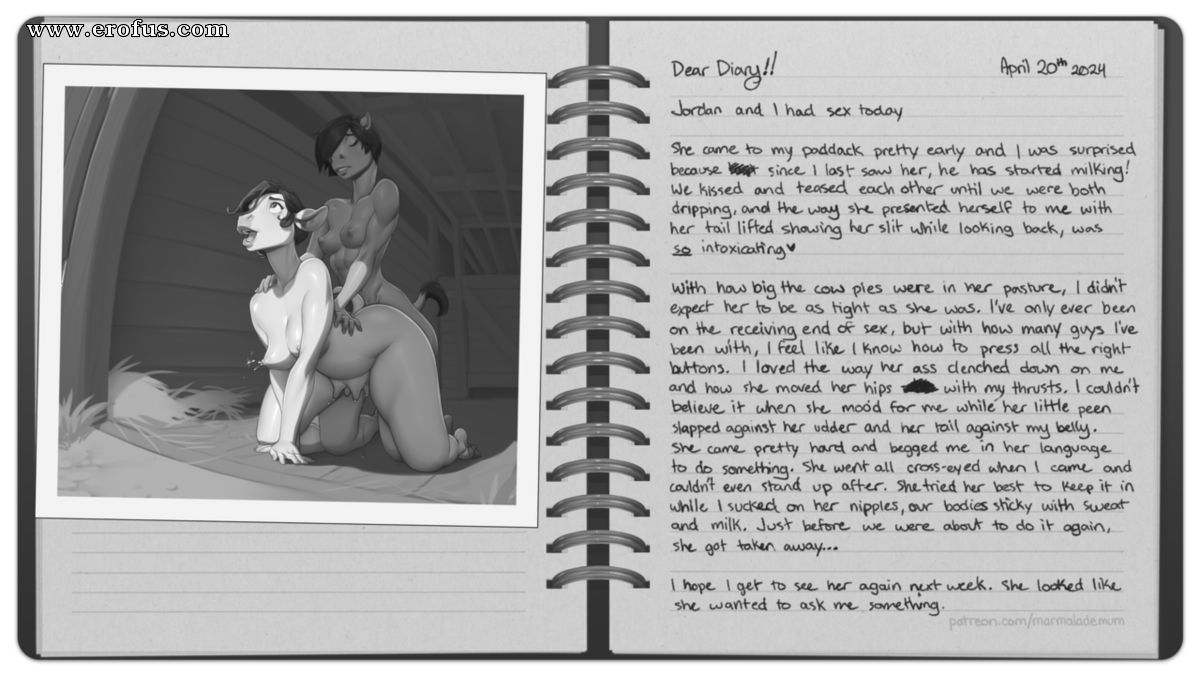 www.erofus.com
Dear Diary!!
April 20th 2024
Jordan and I had sex today
She came to my paddack pretty early and I was surprised
because since I last saw her, he has started milking!
We kissed and teased each other until we were both
dripping, and the way she presented herself to me with
her tail lifted showing her slit while looking back, was
so intoxicating♥
With how big the cow pies were in her pasture, I didn't
expect her to be as tight as she was. I've only ever been
on the receiving end of sex, but with how many guys I've
been with, I feel like I know how to press all the right
buttons. I loved the way her ass clenched down on me
and how she moved her hips with my thrusts. I couldn't
believe it when she moo'd for me while her little peen
slapped against her udder and her tail against my belly.
She came pretty hard and begged me in her language
to do something. She went all cross-eyed when I came and
couldn't even stand up after. She tried her best to keep it in
while I sucked on her nipples, our bodies sticky with sweat
and milk. Just before we were about to do it again,
she got taken away...
I hope I get to see her again next week. She looked like
she wanted to ask me something.
patreon.com/marmalademum